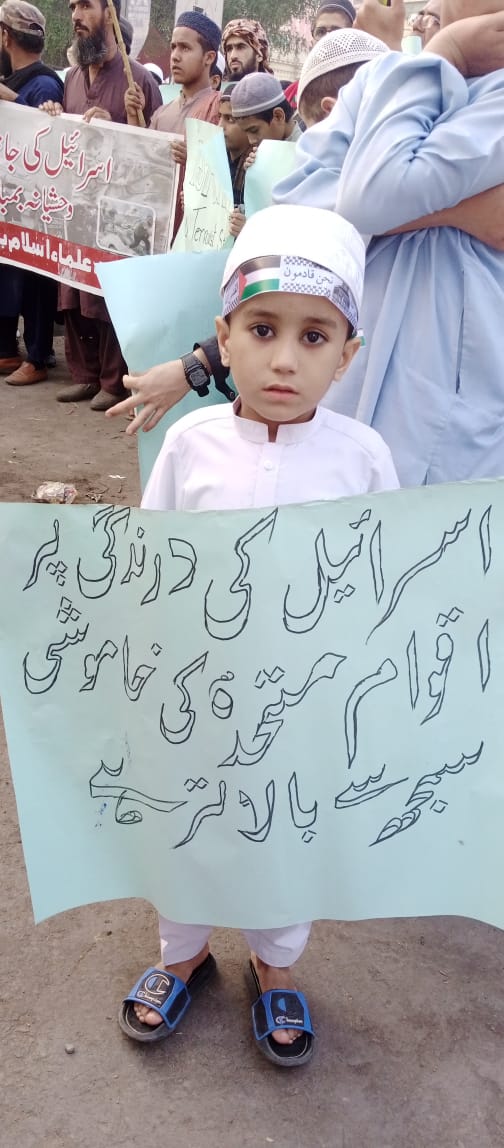 اسرائیل کی جا
وحشیانہ بمبا
علماء اسلام
نحن قادمون
اسرائیل کی درندگی پر
اقوام متحدہ کی خاموشی
سمجھ سے بالاتر ہے
Champion